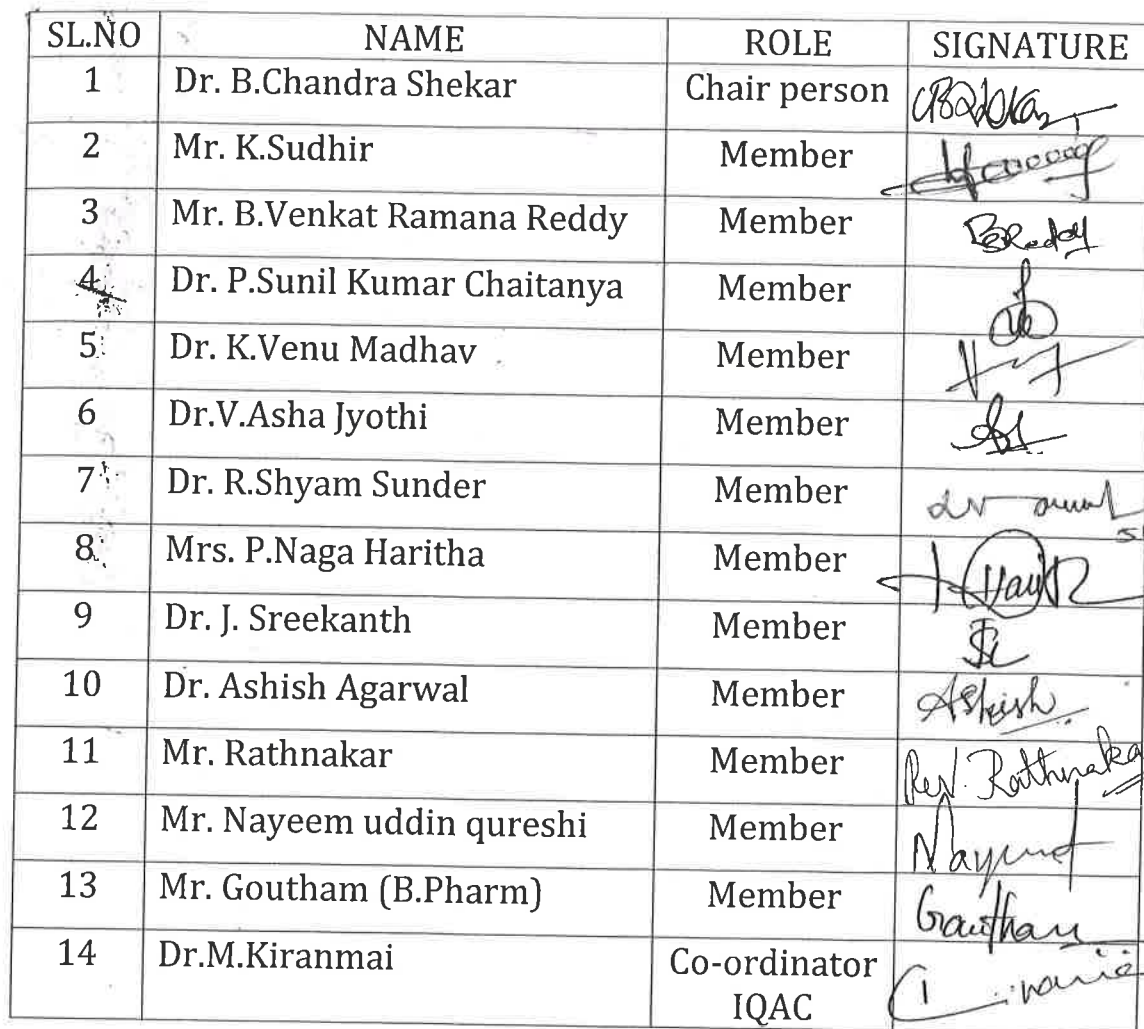 SL.NO NAME ROLE SIGNATURE
1 Dr. B.Chandra Shekar Chair person
2 Mr. K.Sudhir Member
3 Mr. B.Venkat Ramana Reddy Member BReddy
4 Dr. P.Sunil Kumar Chaitanya Member
5 Dr. K.Venu Madhav Member
6 Dr.V.Asha Jyothi Member
7 Dr. R.Shyam Sunder Member
8 Mrs. P.Naga Haritha Member
9 Dr. J. Sreekanth Member
10 Dr. Ashish Agarwal Member Ashish
11 Mr. Rathnakar Member Rev. Rathnaka
12 Mr. Nayeem uddin qureshi Member
13 Mr. Goutham (B.Pharm) Member Gautham
14 Dr.M.Kiranmai Co-ordinator
IQAC